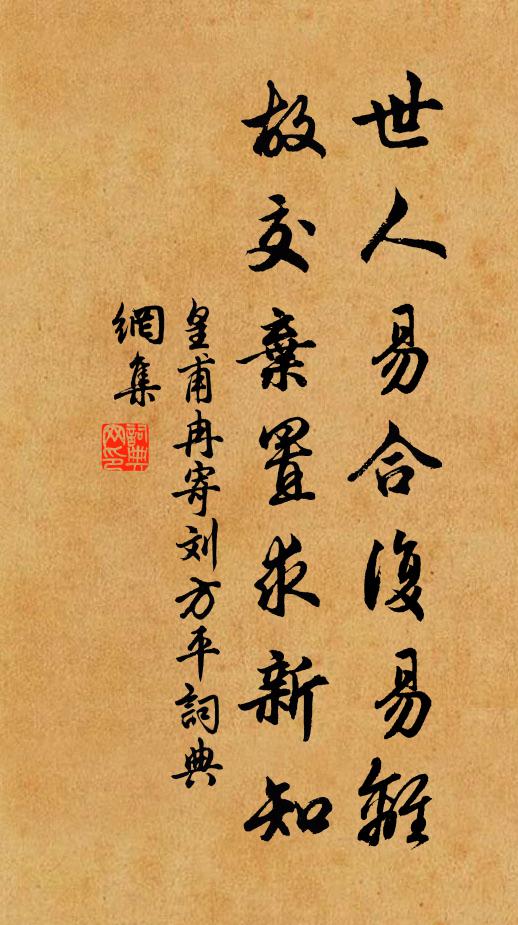 世人易合復易離
故交棄置求新知
皇甫冉寄刘方平詞典
網集
詞典
网印